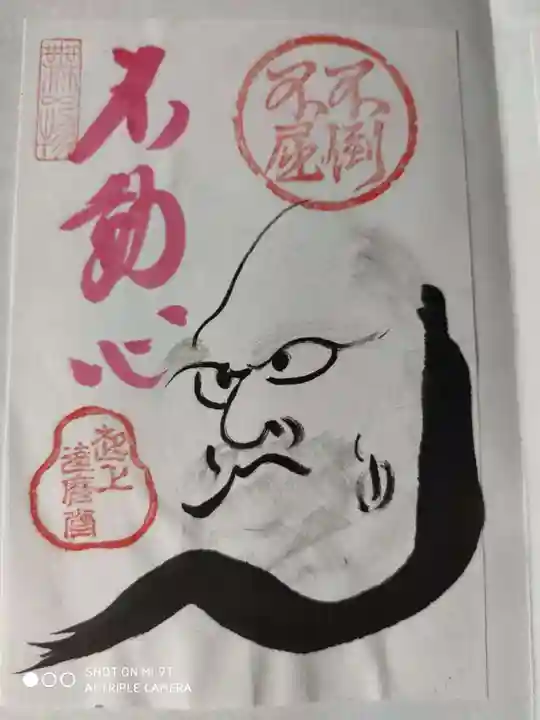 不倒
不屈
不動心
起上
達磨尊
SHOT ON MI 9T
AI TRIPLE CAMERA